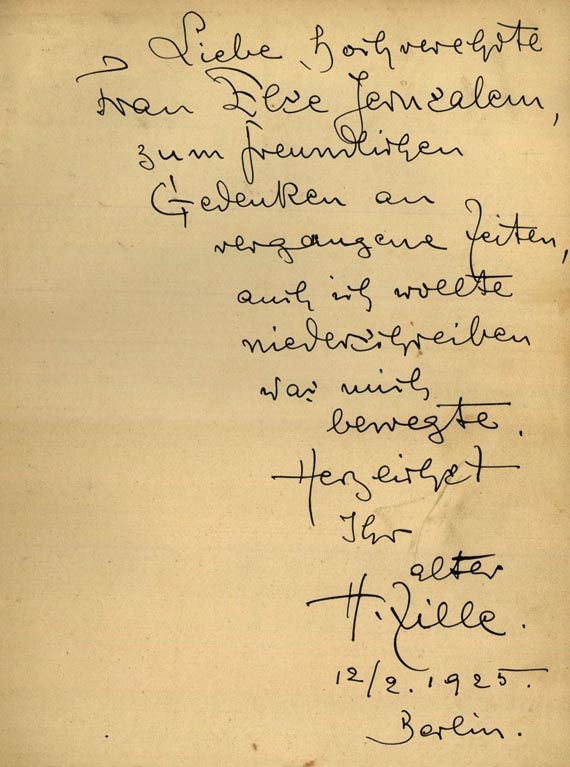 Liebe hochverehrte
Frau Else Jerusalem,
zum freundlichen
Gedenken an
vergangene Zeiten,
auch ich wollte
niederschreiben
was mich
bewegte.
Herzlichst
Ihr
alter
H. Zille.
12/2. 1925.
Berlin.